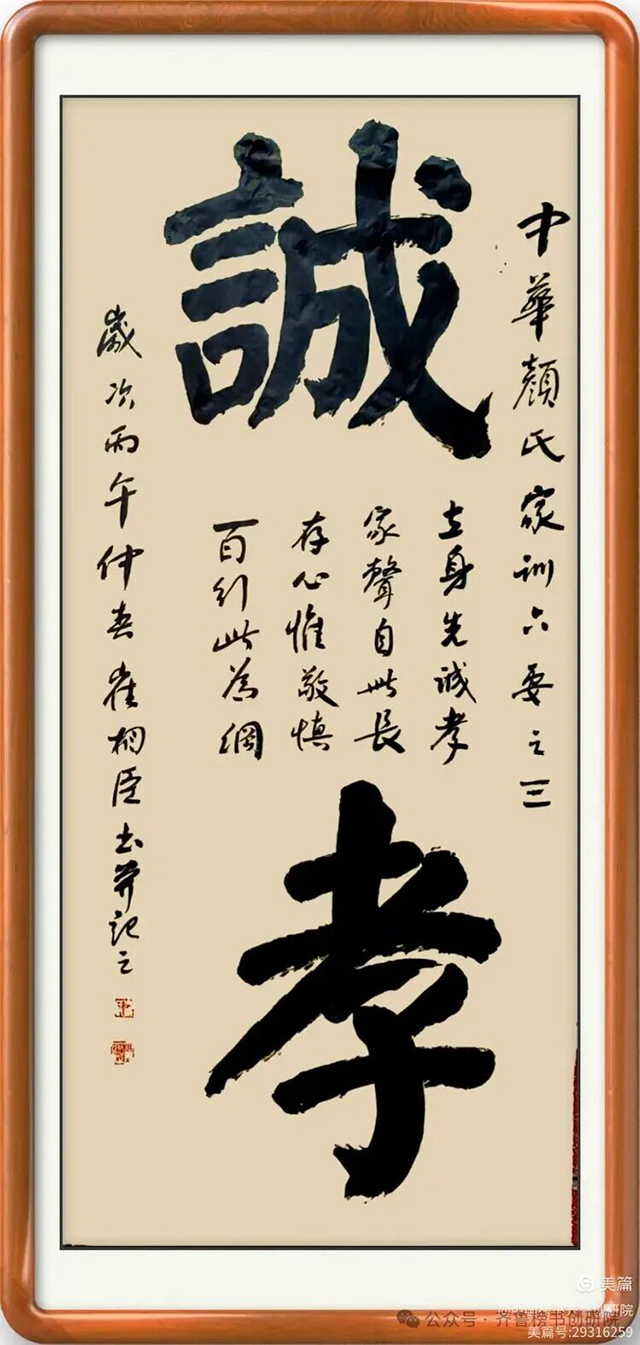 中華顔氏家训六要之三
誠
孝
立身先诚孝
家聲自此長
存心惟敬慎
百行此为綱
歲次丙午仲春崔相臣书并记之
美篇
公众号 · 齐鲁榜书创研院
美篇号:29316259